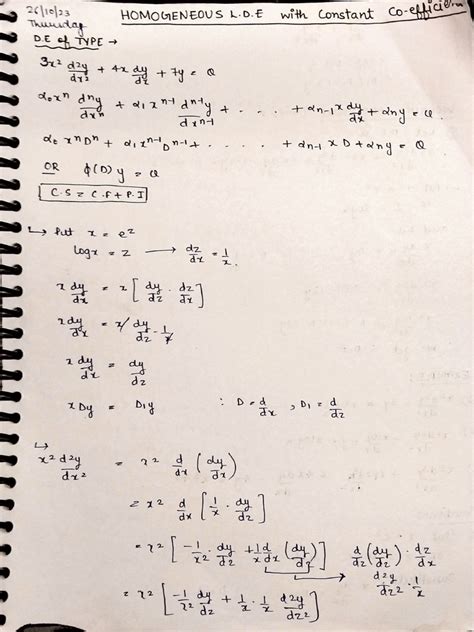 26/10/23
Thursday
HOMOGENEOUS L.D.E with Constant Co-efficien
D.E of TYPE →
3x² d²y/dx² + 4x dy/dx + 7y = Q
α₀xⁿ dⁿy/dxⁿ + α₁xⁿ⁻¹ dⁿ⁻¹y/dxⁿ⁻¹ + . . . . + αn-1 x dy/dx + αny = Q
α₀ xⁿDⁿ + α₁xⁿ⁻¹Dⁿ⁻¹ + . . . . . + αn-1 x D + αny = Q
OR ϕ(D) y = Q
C.S = C.F + P.I
↳ Put x = e^z
log x = z → dz/dx = 1/x.
x dy/dx = x [dy/dz · dz/dx]
x dy/dx = x dy/dz · 1/x
x dy/dx = dy/dz
x Dy = D₁y : D = d/dx , D₁ = d/dz
↳
x² d²y/dx² = x² d/dx (dy/dx)
= x² d/dx [1/x · dy/dz]
= x² [-1/x² · dy/dz + 1/x d/dx (dy/dz)] → d/dz (dy/dz) · dz/dx
d²y/dz² · 1/x
= x² [-1/x² dy/dz + 1/x · 1/x d²y/dz²]